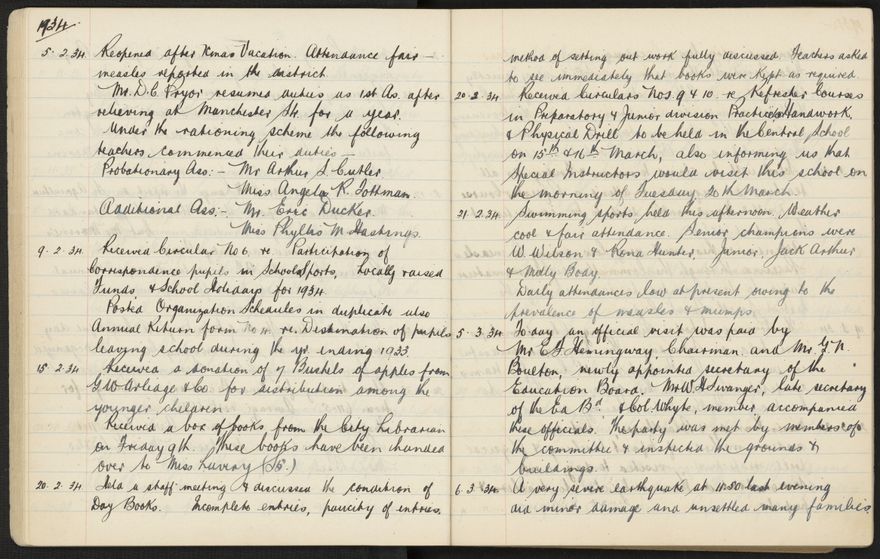 1934.
5. 2. 34. Reopened after Xmas Vacation. Attendance fair –
measles reported in the district.
Mr. D.C. Pryor resumed duties as 1st As. after
relieving at Manchester St. for a year.
Under the rationing scheme the following
teachers commenced their duties –
Probationary Ass: – Mr Arthur S. Cutler.
Miss Angela R. Tothman.
Additional Ass: – Mr. Eric Ducker.
Miss Phyllis M Hastings.
9. 2. 34. Received Circular No 6. re Participation of
Correspondence pupils in School Sports, Locally raised
Funds & School Holidays for 1934.
Posted Organization Schedules in duplicate also
Annual Return form No 14. re. Destination of pupils
leaving school during the yr. ending 1933.
15. 2. 34. Received a donation of 7 Bushels of apples from
G.W. Arliage & Co for distribution among the
younger children.
Received a box of books from the City Librarian
on Friday 9th. These books have been handed
over to Miss Lavery (S5.)
20. 2. 34. Held a staff meeting & discussed the condition of
Day Books. Incomplete entries, paucity of entries,
method of setting out work fully discussed. Teachers asked
to see immediately that books were kept as required.
20. 2. 34 Received Circulars Nos. 9 & 10. re Refresher Courses
in Preparatory & Junior division Practices Handwork,
& Physical Drill to be held in the Central School
on 15th & 16th March, also informing us that
Special Instructors would visit this school on
the morning of Tuesday 20th March.
21. 2. 34. Swimming sports held this afternoon. Weather
cool & fair attendance. Senior champions were
W. Wilson & Rona Hunter, Junior, Jack Arthur
& Molly Body.
Daily attendances low at present owing to the
prevalence of measles & mumps.
5. 3. 34. Today an official visit was paid by
Mr. E.F. Hemingway, Chairman, and Mr. G.N.
Boulton, newly appointed secretary of the
Education Board. Mr W.H. Swanger, late secretary
of the Ed Bd. & Col Whyte, member, accompanied
these officials. The party was met by members of
the committee & inspected the grounds &
buildings.
6. 3. 34. A very severe earthquake at 11.50 last evening
did minor damage and unsettled many families